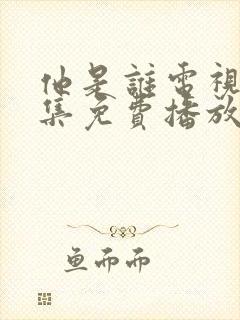 他是誰電視
集免費播放
鱼而而